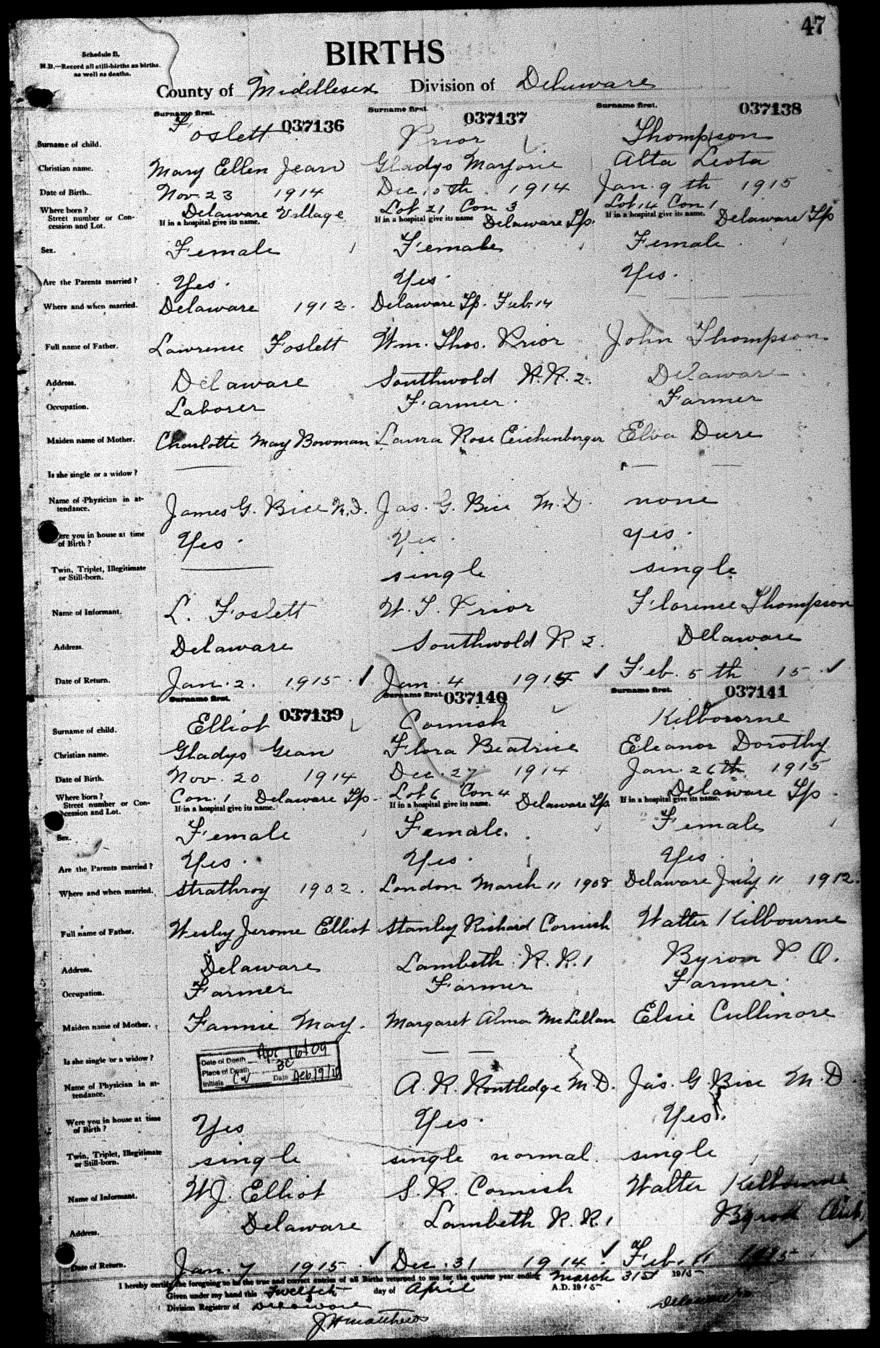 47
Schedule B.
N.B.—Record all still-births as births.
as well as deaths.
BIRTHS
County of Middlesex Division of Delaware
Surname first. Surname first. Surname first.
037136 037137 037138
Surname of child. Foslett Prior Thompson
Christian name. Mary Ellen Jean Gladys Marjorie Alta Leota
Date of Birth. Nov. 23 1914 Dec. 10th 1914 Jan. 9th 1915
Where born? Delaware Village Lot 21 Con 3 Lot 14 Con 1
Street number or Con- If in a hospital give its name. If in a hospital give its name Delaware Tp. If in a hospital give its name. Delaware Tp
cession and Lot.
Sex. Female Female Female
Are the Parents married? Yes. Yes. Yes.
Where and when married. Delaware 1912. Delaware Tp. Feb. 14
Full name of Father. Lawrence Foslett Wm. Thos. Prior John Thompson
Address. Delaware Southwold R.R. 2. Delaware
Occupation. Laborer Farmer. Farmer
Maiden name of Mother. Charlotte May Bowman Laura Rose Eichenberger Elva Dure
Is she single or a widow?
Name of Physician in at- James G. Bice M.D. Jas. G. Bice M.D. none
tendance.
Were you in house at time Yes. Yes. yes.
of Birth?
Twin, Triplet, Illegitimate single single
or Still-born.
Name of Informant. L. Foslett W. T. Prior Florence Thompson
Address. Delaware Southwold R 2. Delaware
Date of Return. Jan. 2. 1915. Jan. 4 1915 Feb. 5th 15.
Surname first. Surname first. Surname first.
037139 037140 037141
Surname of child. Elliot Cornish Kilbourne
Christian name. Gladys Gean Flora Beatrice Eleanor Dorothy
Date of Birth. Nov. 20 1914 Dec. 27 1914 Jan. 26th 1915
Where born? Con. 1 Delaware Tp. Lot 6 Con 4 Delaware Tp.
Street number or Con- If in a hospital give its name. If in a hospital give its name. Delaware Tp. If in a hospital give its name.
cession and Lot.
Sex. Female Female. Female
Are the Parents married? Yes. Yes. Yes.
Where and when married. Strathroy 1902. London March 11 1908 Delaware July 11 1912.
Full name of Father. Wesley Jerome Elliot Stanley Richard Cornish Walter Kilbourne
Address. Delaware Lambeth R.R. 1 Byron P.O.
Occupation. Farmer Farmer Farmer.
Maiden name of Mother. Fannie May. Margaret Alma McLellan Elsie Cullimore
Is she single or a widow?
Date of Death Apr 16/09
Place of Death BC
Initials Date
Name of Physician in at- A. R. Routledge M.D. Jas. G. Bice M.D.
tendance.
Were you in house at time Yes Yes. Yes.
of Birth?
Twin, Triplet, Illegitimate single single normal. single
or Still-born.
Name of Informant. W.J. Elliot S. R. Cornish Walter Kilbourne
Address. Delaware Lambeth R.R. 1 Byron
Date of Return. Jan. 7 1915. Dec. 31 1914 Feb. 11 1915.
I hereby certify the foregoing to be the true and correct entries of all Births returned to me for the quarter year ending March 31st 1915
Given under my hand this Twelfth day of April A.D. 1915
Division Registrar of Delaware
J H Matthews